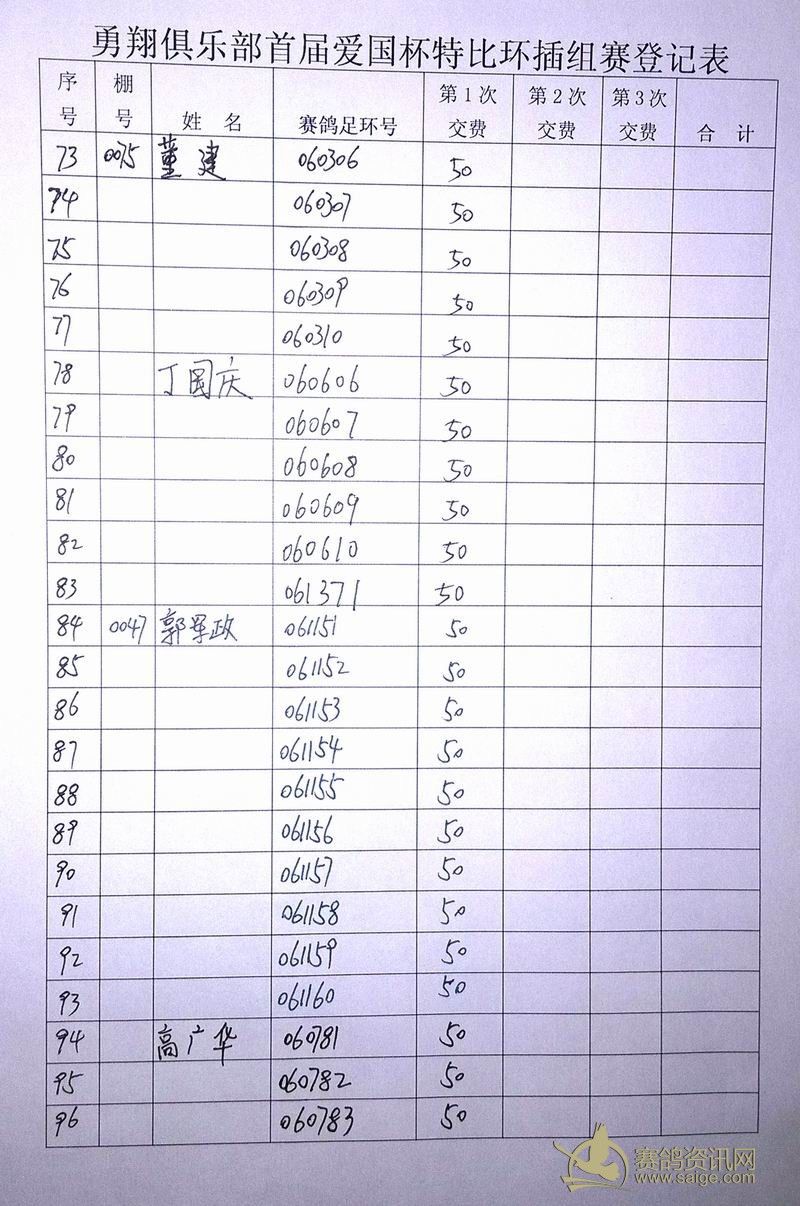 勇翔俱乐部首届爱国杯特比环插组赛登记表
序号 棚号 姓名 赛鸽足环号 第1次交费 第2次交费 第3次交费 合计
73 0075 董建 060306 50
74 060307 50
75 060308 50
76 060309 50
77 060310 50
78 丁国庆 060606 50
79 060607 50
80 060608 50
81 060609 50
82 060610 50
83 061371 50
84 0047 郭军政 061151 50
85 061152 50
86 061153 50
87 061154 50
88 061155 50
89 061156 50
90 061157 50
91 061158 50
92 061159 50
93 061160 50
94 高广华 060781 50
95 060782 50
96 060783 50
赛鸽资讯网
www.saige.com